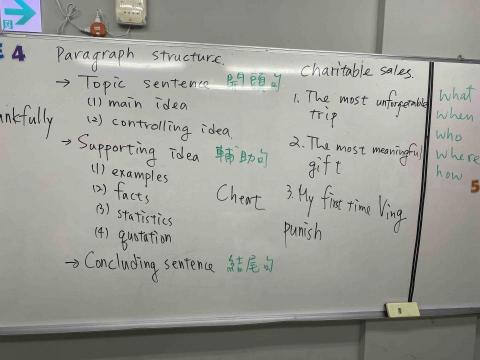 4
Paragraph structure.
→ Topic sentence 開頭句
(1) main idea
(2) controlling idea.
→ Supporting idea 輔助句
(1) examples
(2) facts
(3) statistics
(4) quotation
→ Concluding sentence 結尾句
Cheat
charitable sales.
1. The most unforgettable
trip
2. The most meaningful
gift
3. My first time Ving
punish
what
when
who
where
how
5